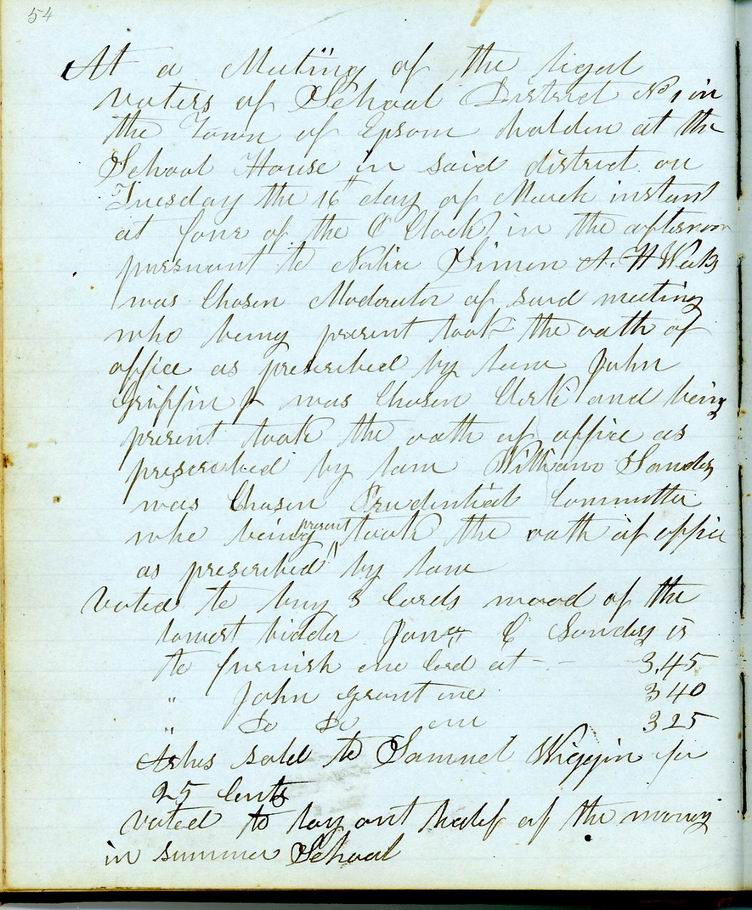 54
At a Meeting of the legal
voters of School District No 1 in
the Town of Epsom holden at the
School House in said district on
Tuesday the 16th day of March instant
at four of the O Clock in the afternoon
pursuant to Notice Simon A. H Weeks
was Chosen Moderator of said meeting
who being present took the oath of
office as prescribed by law John
Griffin Jr was Chosen Clerk and being
present took the oath of office as
prescribed by law William Sanders
was Chosen Prudential Committee
who being present took the oath of office
as prescribed by law
Voted to buy 3 Cords wood of the
lowest bidder C Sanders is
to furnish one Cord at - - 3,45
" John Grant one 3 40
" Do Do one 3 25
Ashes sold to Samuel Wiggin for
25 Cents
voted to lay out half of the money
in summer School